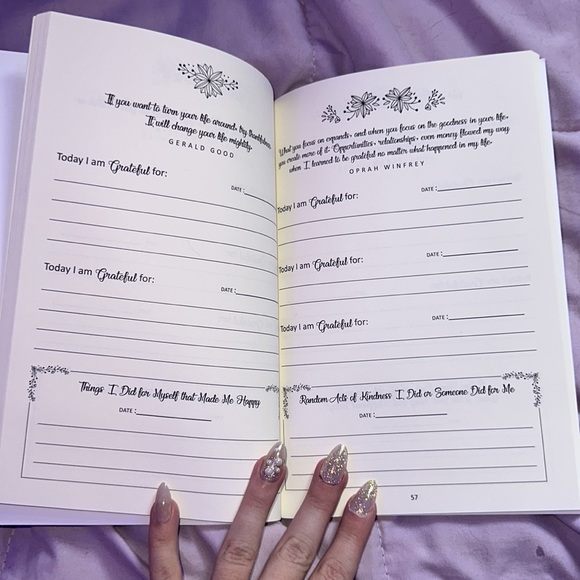 If you want to turn your life around, try thankfulness.
It will change your life mightily.
GERALD GOOD
Today I am Grateful for:
DATE:
Today I am Grateful for:
DATE:
Things I Did for Myself that Made Me Happy
DATE:
What you focus on expands, and when you focus on the goodness in your life,
you create more of it. Opportunities, relationships, even money flowed my way
when I learned to be grateful no matter what happened in my life.
OPRAH WINFREY
DATE:
Today I am Grateful for:
DATE:
Today I am Grateful for:
DATE:
Today I am Grateful for:
Random Acts of Kindness I Did or Someone Did for Me
DATE:
57